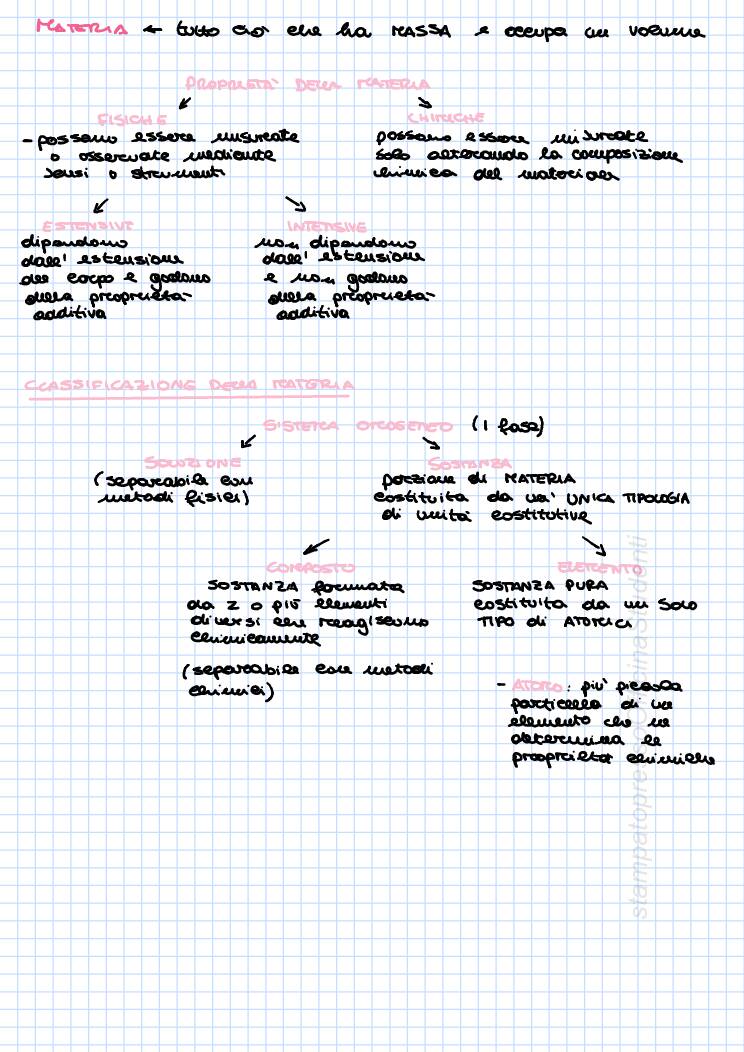 MATERIA ← tutto ciò che ha MASSA e occupa un volume
PROPRIETA' DELLA MATERIA
FISICHE
CHIMICHE
- possono essere misurate
o osservate mediante
sensi o strumenti
possono essere misurate
solo alterando la composizione
chimica del materiale
ESTENSIVE
INTENSIVE
dipendono
dall' estensione
del corpo e godono
della proprietà
additiva
non dipendono
dall' estensione
e non godono
della proprietà
additiva
CLASSIFICAZIONE DELLA MATERIA
SISTEMA OMOGENEO (1 fase)
SOLUZIONE
SOSTANZA
(separabile con
metodi fisici)
porzione di MATERIA
costituita da un' UNICA TIPOLOGIA
di unità costitutive
COMPOSTO
ELEMENTO
SOSTANZA formata
da 2 o più elementi
diversi che reagiscono
chimicamente
(separabile con metodi
chimici)
SOSTANZA PURA
costituita da un SOLO
TIPO di ATOMI
- ATOMO: più piccola
particella di un
elemento che ne
determina le
proprietà chimiche